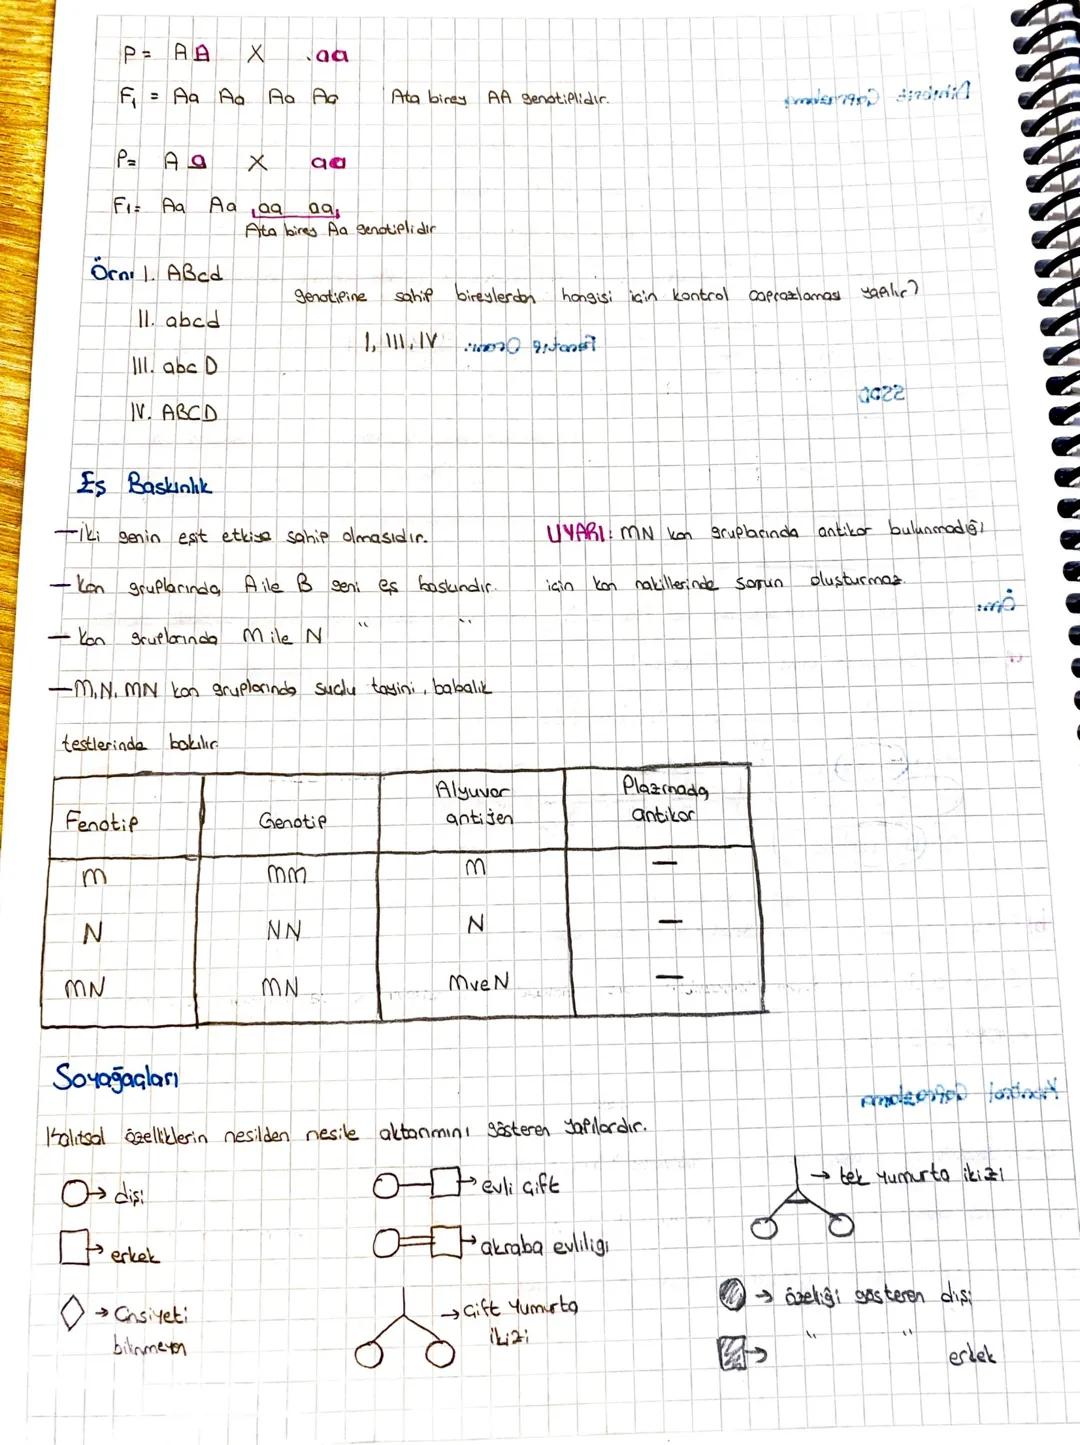 P= AA X aa
F1 = Aa Aa Aa Aa Ata birey AA genotiplidir.
P= Aa X aa
F1= Aa Aa aa aa
Ata birey Aa genotiplidir
Örn: I. ABcd
genotipine sahip bireylerden hangisi için kontrol çaprazlaması yapılır?
II. abcd
I, III, IV
III. abc D
IV. ABCD
Eş Baskınlık
—İki genin eşit etkiye sahip olmasıdır.
— Kan gruplarında A ile B geni eş baskındır.
— Kan gruplarında M ile N " "
—M,N,MN kan gruplarında suçlu tayini, babalık
testlerinde bakılır.
UYARI: MN kan gruplarında antikor bulunmadığı
için kan nakillerinde sorun oluşturmaz.
Fenotip Genotip Alyuvar antijen Plazmada antikor
M MM M —
N NN N —
MN MN M ve N —
Soyağaçları
Kalıtsal özelliklerin nesilden nesile aktarımını gösteren yapılardır.
→ dişi
→ evli çift
→ tek yumurta ikizi
→ erkek
→ akraba evliliği
→ Cnsiyeti
bilinmeyen
→ Çift Yumurta
ikizi
→ özeliği gösteren dişi
→ " " erkek